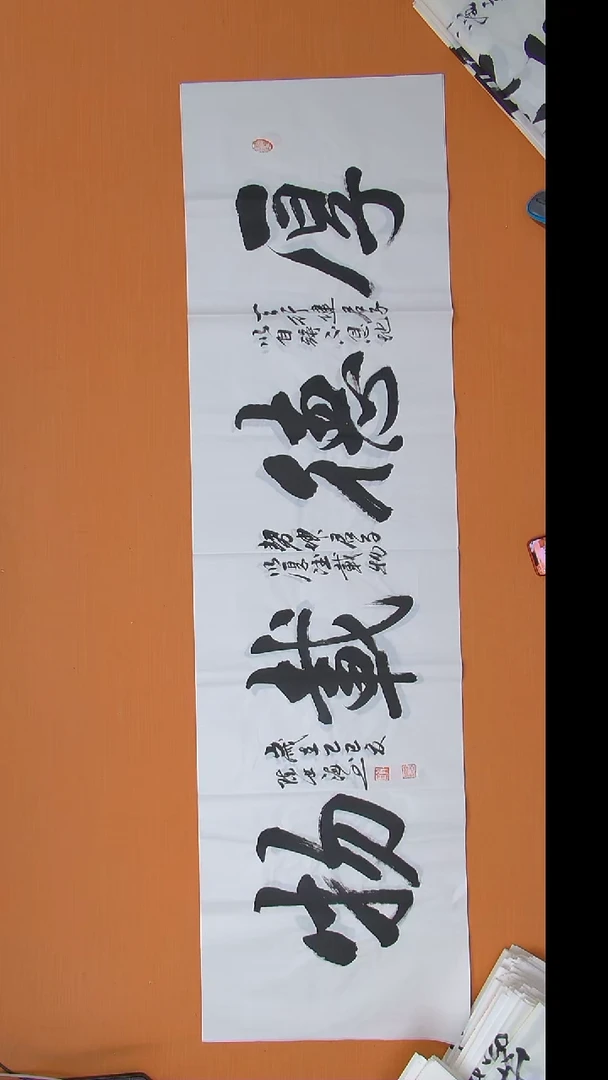 厚
天行健君子
以自強不息地
德
勢坤君子
以厚德載物
載
歲在乙巳夏
物